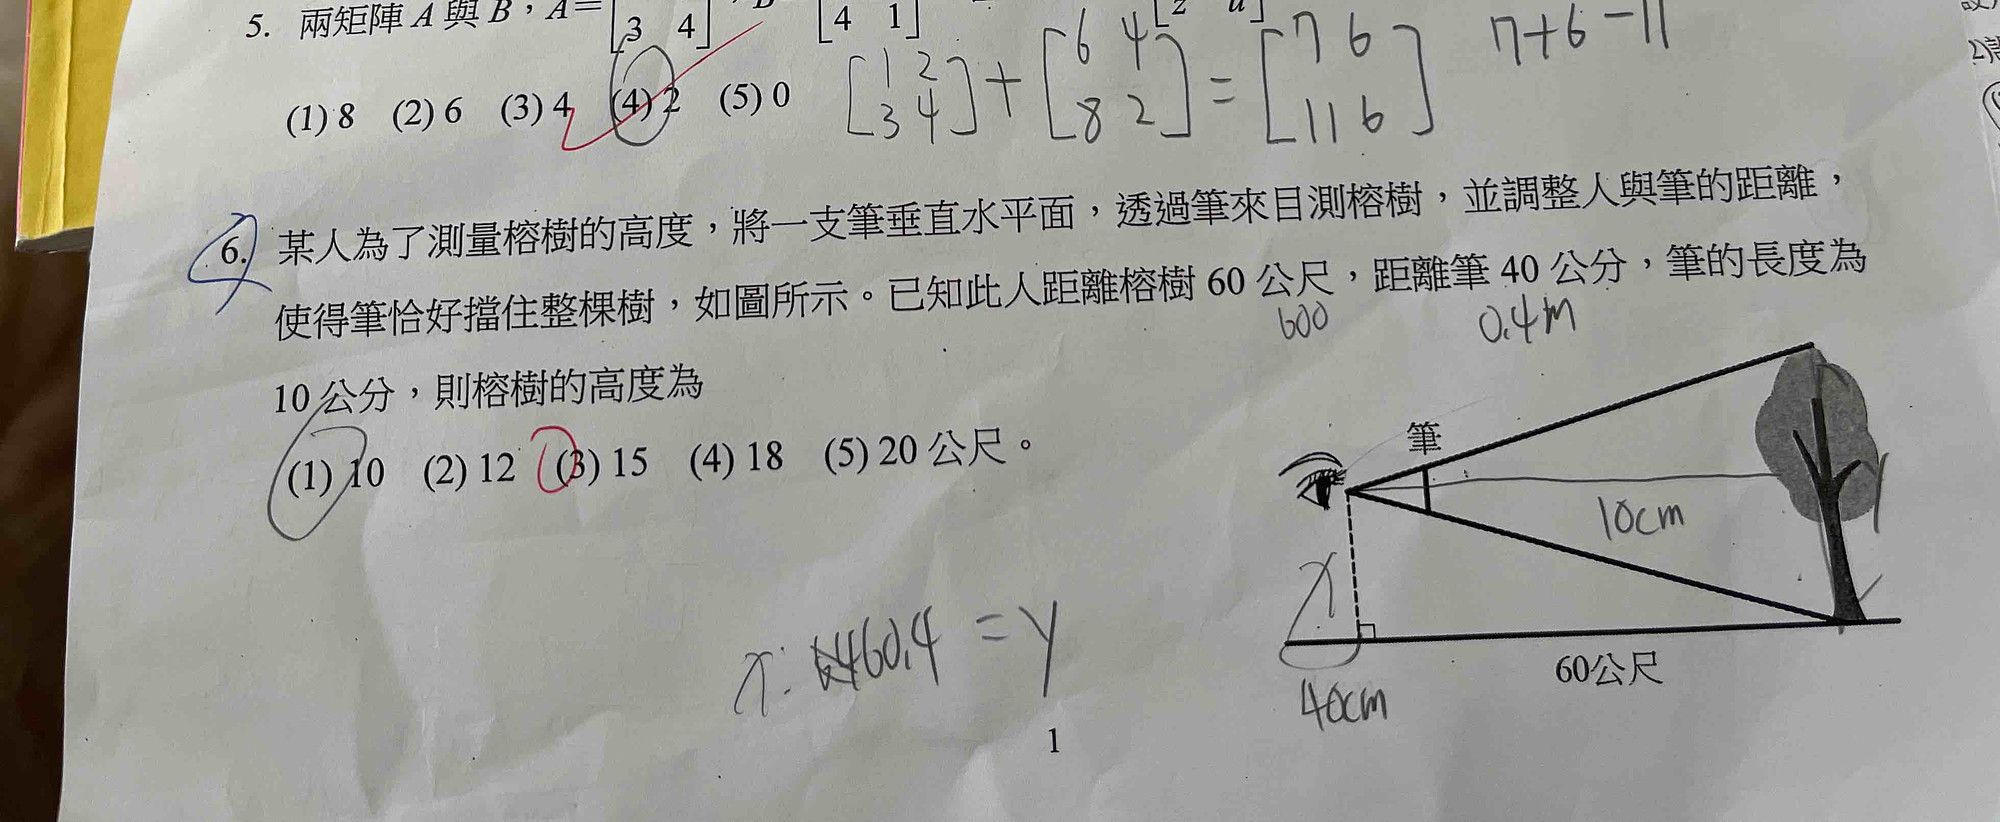 5. 兩矩陣 A 與 B,A=[
3 4]
4 1]
z u]
(1) 8 (2) 6 (3) 4 (4) 2 (5) 0
[1 2
3 4] + [6 4
8 2] = [7 6
11 6]
7+6-11
6. 某人為了測量榕樹的高度,將一支筆垂直水平面,透過筆來目測榕樹,並調整人與筆的距離,
使得筆恰好擋住整棵樹,如圖所示。已知此人距離榕樹 60 公尺,距離筆 40 公分,筆的長度為
600 0.4m
10 公分,則榕樹的高度為
(1) 10 (2) 12 (3) 15 (4) 18 (5) 20 公尺。
筆
10cm
x
y
60公尺
40cm
60.4 = y
1